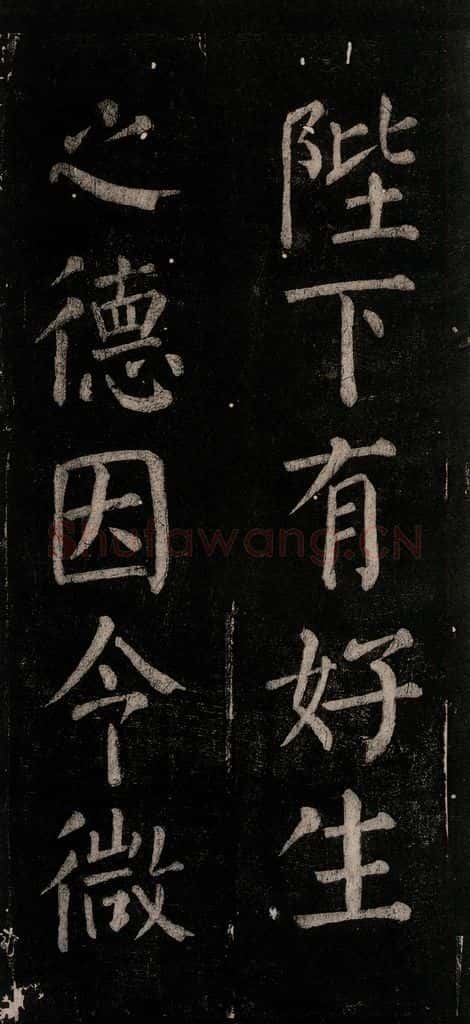 陛下有好生
之德因令微
Shufawang.CN